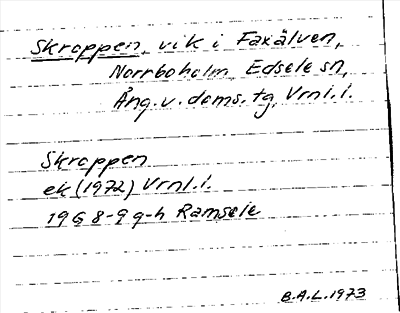 Skroppen, vik i Faxälven,
Norrboholm, Edsele sn,
Ång.v.doms.tg, Vrnl.l.
Skroppen
ek (1972) Vrnl.l.
19G 8-9 g-h Ramsele
B.A.L. 1973